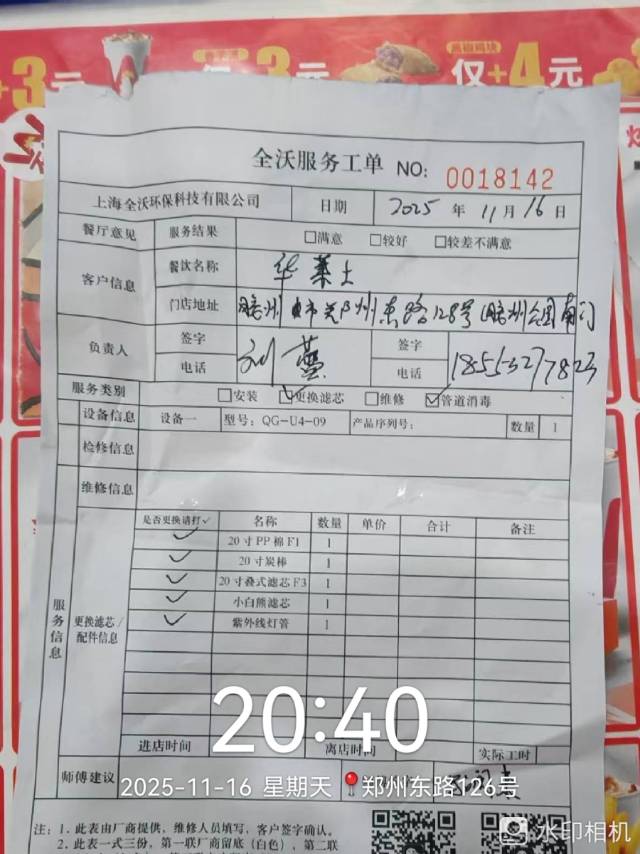 +3元
仅+3元
黑椒鸡块
仅+4元
全沃服务工单 NO: 0018142
上海全沃环保科技有限公司 日期 2025 年 11 月 16 日
餐厅意见 服务结果 □满意 □较好 □较差不满意
客户信息 餐饮名称 华莱士
门店地址 胶州市郑州东路128号(胶州公园南门
负责人 签字 签字
电话 电话 18555277823
服务类别 □安装 ☑更换滤芯 □维修 ☑管道消毒
设备信息 设备一 型号: QG-U4-09 产品序列号: 数量 1
检修信息
维修信息
服务信息
更换滤芯/配件信息
是否更换请打✓ 名称 数量 单价 合计 备注
✓ 20寸PP棉F1 1
✓ 20寸炭棒 1
✓ 20寸叠式滤芯F3 1
✓ 小白熊滤芯 1
✓ 紫外线灯管 1
进店时间 离店时间 实际工时
师傅建议
20:40
2025-11-16 星期天 郑州东路126号
注: 1、此表由厂商提供,维修人员填写,客户签字确认。
2、此表一式三份,第一联厂商留底(白色),第二联
水印相机